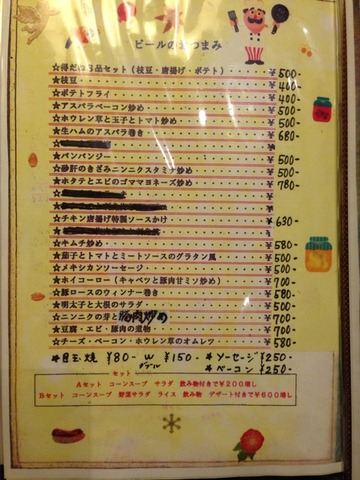 ビールのおつまみ
☆得だね3品セット（枝豆・唐揚げ・ポテト）・・・・・・￥500-
☆枝豆・・・・・・￥400-
☆ポテトフライ・・・・・・￥400-
☆アスパラベーコン炒め・・・・・・￥500-
☆ホウレン草と玉子とトマト炒め・・・・・・￥500-
☆生ハムのアスパラ巻き・・・・・・￥680-
☆
☆バンバンジー・・・・・・￥500-
☆砂肝のきざみニンニクスタミナ炒め・・・・・・￥500-
☆ホタテとエビのゴママヨネーズ炒め・・・・・・￥780-
☆
☆
☆チキン唐揚げ特製ソースかけ・・・・・・￥630-
☆
☆キムチ炒め・・・・・・￥580-
☆茄子とトマトとミートソースのグラタン風・・・・・・￥500-
☆メキシカンソーセージ・・・・・・￥500-
☆ホイコーロー（キャベツと豚肉甘ミソ炒め）・・・・・・￥700-
☆豚ロースのウィンナー巻き・・・・・・￥580-
☆明太子と大根のサラダ・・・・・・￥500-
☆ニンニクの芽と豚肉炒め・・・・・・￥700-
☆豆腐・エビ・豚肉の煮物・・・・・・￥700-
☆チーズ・ベーコン・ホウレン草のオムレツ・・・・・・￥580-
★目玉焼 ￥80- W ￥150- ★ソーセージ￥250-
ダブル ★ベーコン￥250-
セット
Aセット コーンスープ サラダ 飲み物付きで￥200増し
Bセット コーンスープ 野菜サラダ ライス 飲み物 デザート付きで￥600増し